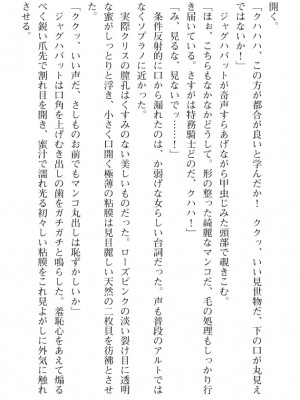 開く。
「クハハハ、この方が都合が良いと学んだか！　ククッ、いい見世物だ、下の口が丸見え
ではないか！」
　ジャグハバットが奇声すらあげながら甲虫じみた頭部で覗きこむ。
「ほぉ、こちらもなかなかどうして。形の整った綺麗なマンコだ、毛の処理もしっかり行
き届いている。さすがは特務騎士どのだ、クハハ！」
「み、見るな、見ないで……！」
　条件反射的に口から漏れたのは、か弱げな女らしい台詞だった。声も普段のアルトでは
なくソプラノに近かった。
　実際クリスの膣孔はくすみのない美しいものだった。ローズピンクの淡い裂け目に透明
な蜜がしっとりと浮き、小さく口開く極薄の粘膜は見目麗しい天然の二枚貝を彷彿とさせ
た。
「ククッ、いい声だ、さしものお前でもマンコ丸出しは恥ずかしいか」
　ジャグハバットは口角を上げむき出しの歯をガチガチと鳴らした。羞恥心をあえて煽る
べく鋭い爪先で割れ目を開き、蜜汁で濡れ光る初々しい粘膜をこれ見よがしに外気に触れ
させる。